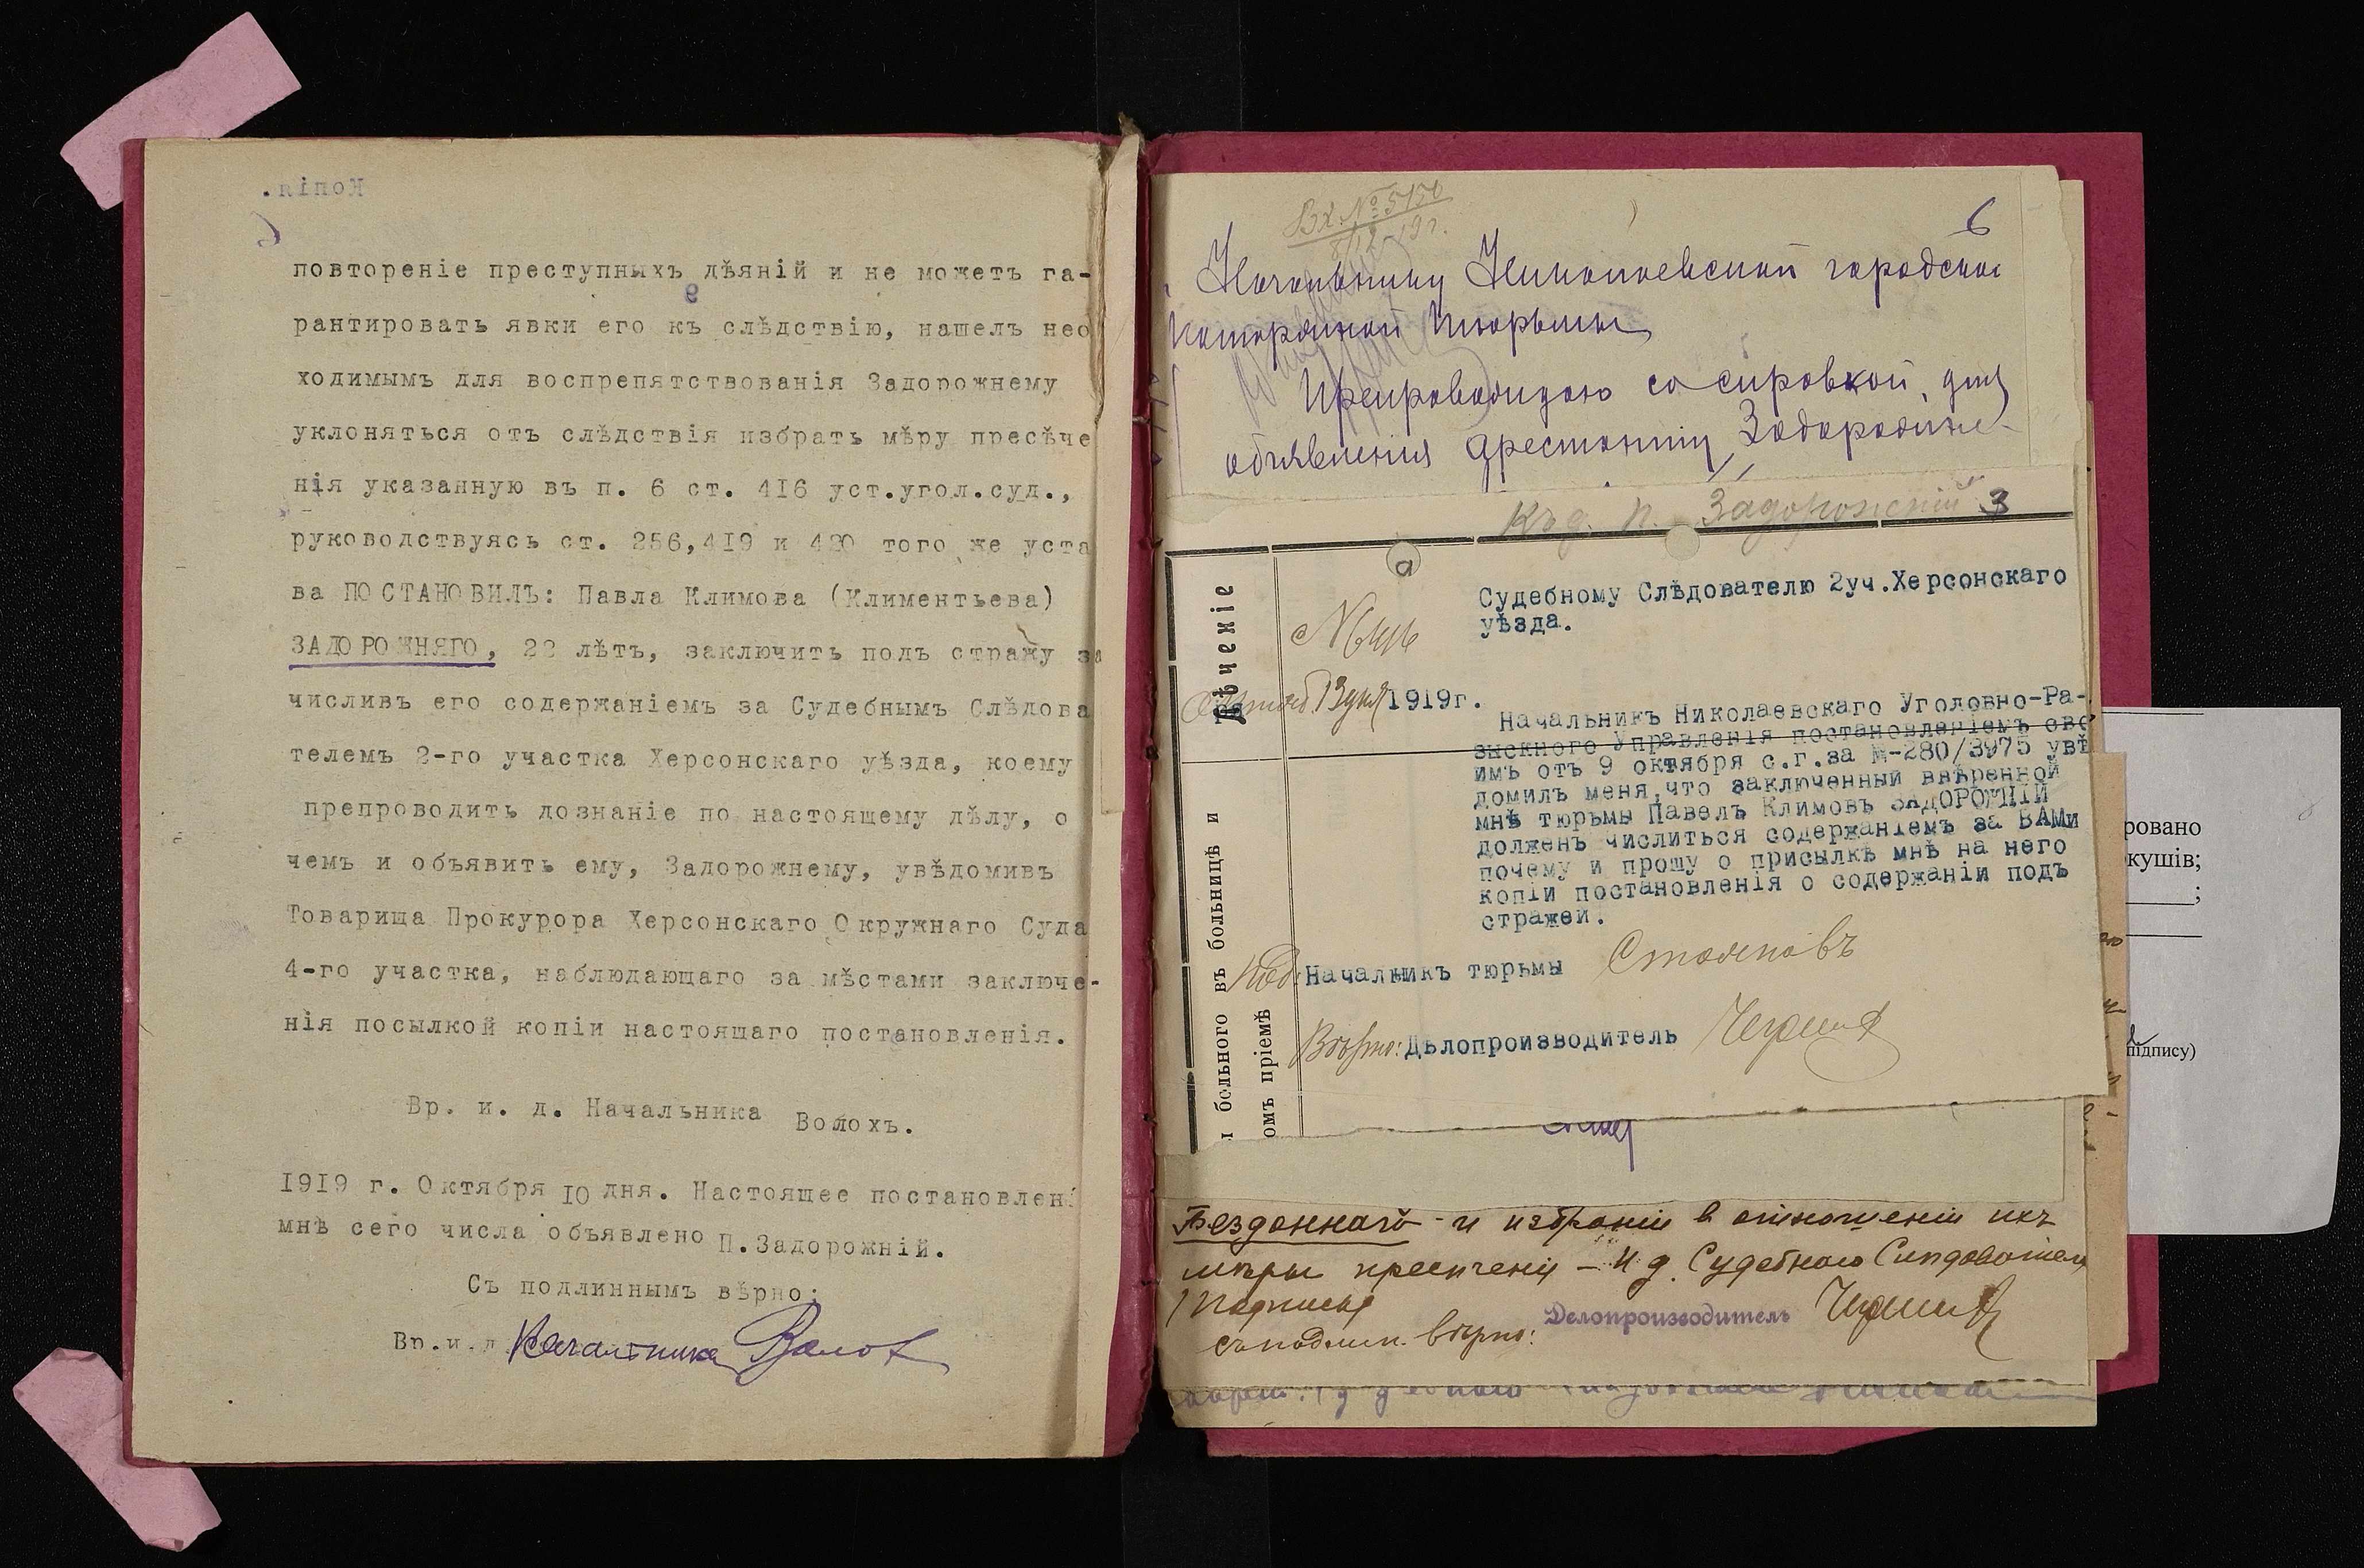 Копія.
повтореніе преступныхъ дѣяній и не можетъ га-
рантировать явки его къ слѣдствію, нашелъ нео
ходимымъ для воспрепятствованія Задорожнему
уклоняться отъ слѣдствія избрать мѣру пресѣче
нія указанную въ п. 6 ст. 416 уст.угол.суд.,
руководствуясь ст. 256,419 и 420 того же уста
ва ПОСТАНОВИЛЪ: Павла Климова (Климентьева)
ЗАДОРОЖНЯГО, 22 лѣтъ, заключить подъ стражу за
числивъ его содержаніемъ за Судебнымъ Слѣдова
телемъ 2-го участка Херсонскаго уѣзда, коему
препроводить дознаніе по настоящему дѣлу, о
чемъ и объявить ему, Задорожнему, увѣдомивъ
Товарища Прокурора Херсонскаго Окружнаго Суда
4-го участка, наблюдающаго за мѣстами заключе-
нія посылкой копіи настоящаго постановленія.
Вр. и. д. Начальника Волохъ.
1919 г. Октября 10 дня. Настоящее постановлені
мнѣ сего числа объявлено П.Задорожній.
Съ подлиннымъ вѣрно:
Вр.и.д. Начальника Волох
Вх. № 5150
8/12 19 г.
6
Начальнику Николаевской городской
каторжной тюрьмы
Препровождаю со справкой, для
объявления арестанту Задорожне-
Къ д. П. Задорожній 3
а
Судебному Слѣдователю 2уч.Херсонскаго
уѣзда.
1919г.
Начальникъ Николаевскаго Уголовно-Ра-
зыскного Управленія постановленіемъ сво
имъ отъ 9 октября с.г.за №-280/3975 увѣ
домилъ меня,что заключенный ввѣренной
мнѣ тюрьмы Павелъ Климовъ ЗАДОРОЖНІЙ
долженъ числиться содержаніемъ за ВАМи
почему и прошу о присылкѣ мнѣ на него
копіи постановленія о содержаніи подъ
стражей.
Под: Начальникъ тюрьмы
Вѣрно: Дѣлопроизводитель
лѣченіе
больного въ больницѣ и
омъ пріемѣ
Бездоннаго - и избраніи в отношеніи ихъ
мѣры пресѣченія – И д. Судебного Слѣдователя
/Подписъ/
съ подлин. вѣрно: Делопроизводитель
ровано
кушів;
;
підпису)